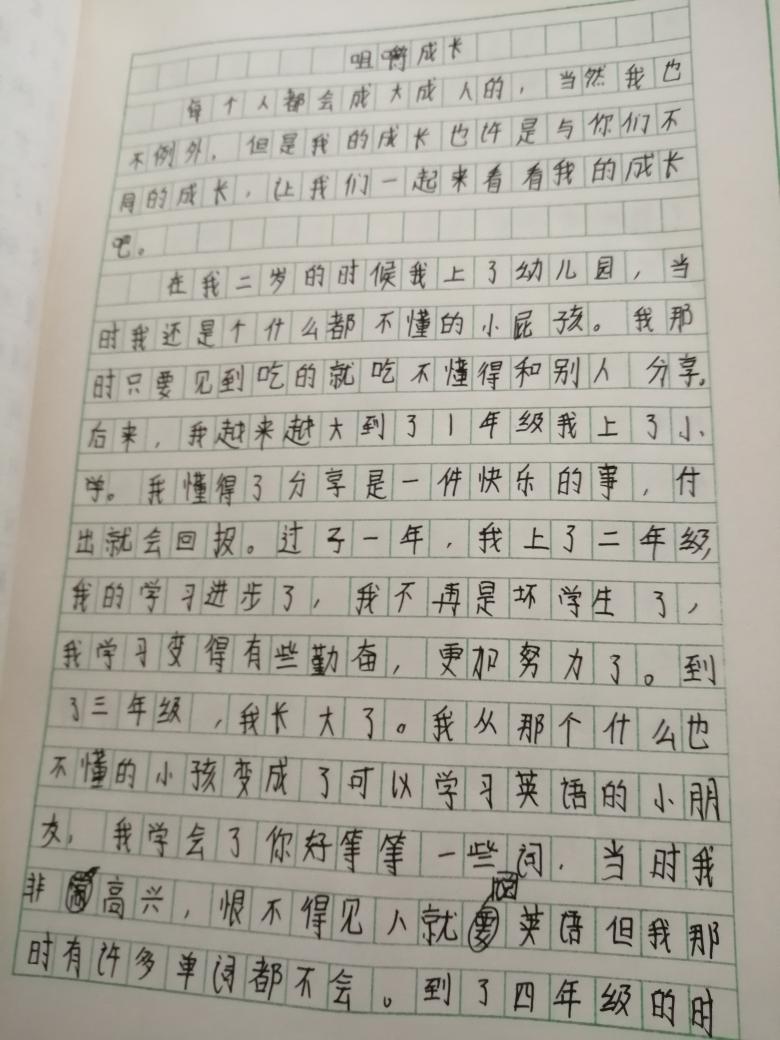 咀嚼成长
每个人都会成大成人的，当然我也
不例外，但是我的成长也许是与你们不
同的成长，让我们一起来看看我的成长
吧。
在我二岁的时候我上了幼儿园，当
时我还是个什么都不懂的小屁孩。我那
时只要见到吃的就吃不懂得和别人分享。
后来，我越来越大到了1年级我上了小
学。我懂得了分享是一件快乐的事，付
出就会回报。过了一年，我上了二年级，
我的学习进步了，我不再是坏学生了，
我学习变得有些勤奋，更加努力了。到
了三年级，我长大了。我从那个什么也
不懂的小孩变成了可以学习英语的小朋
友，我学会了你好等等一些词，当时我
非高兴，恨不得见人就英语但我那
时有许多单词都不会。到了四年级的时